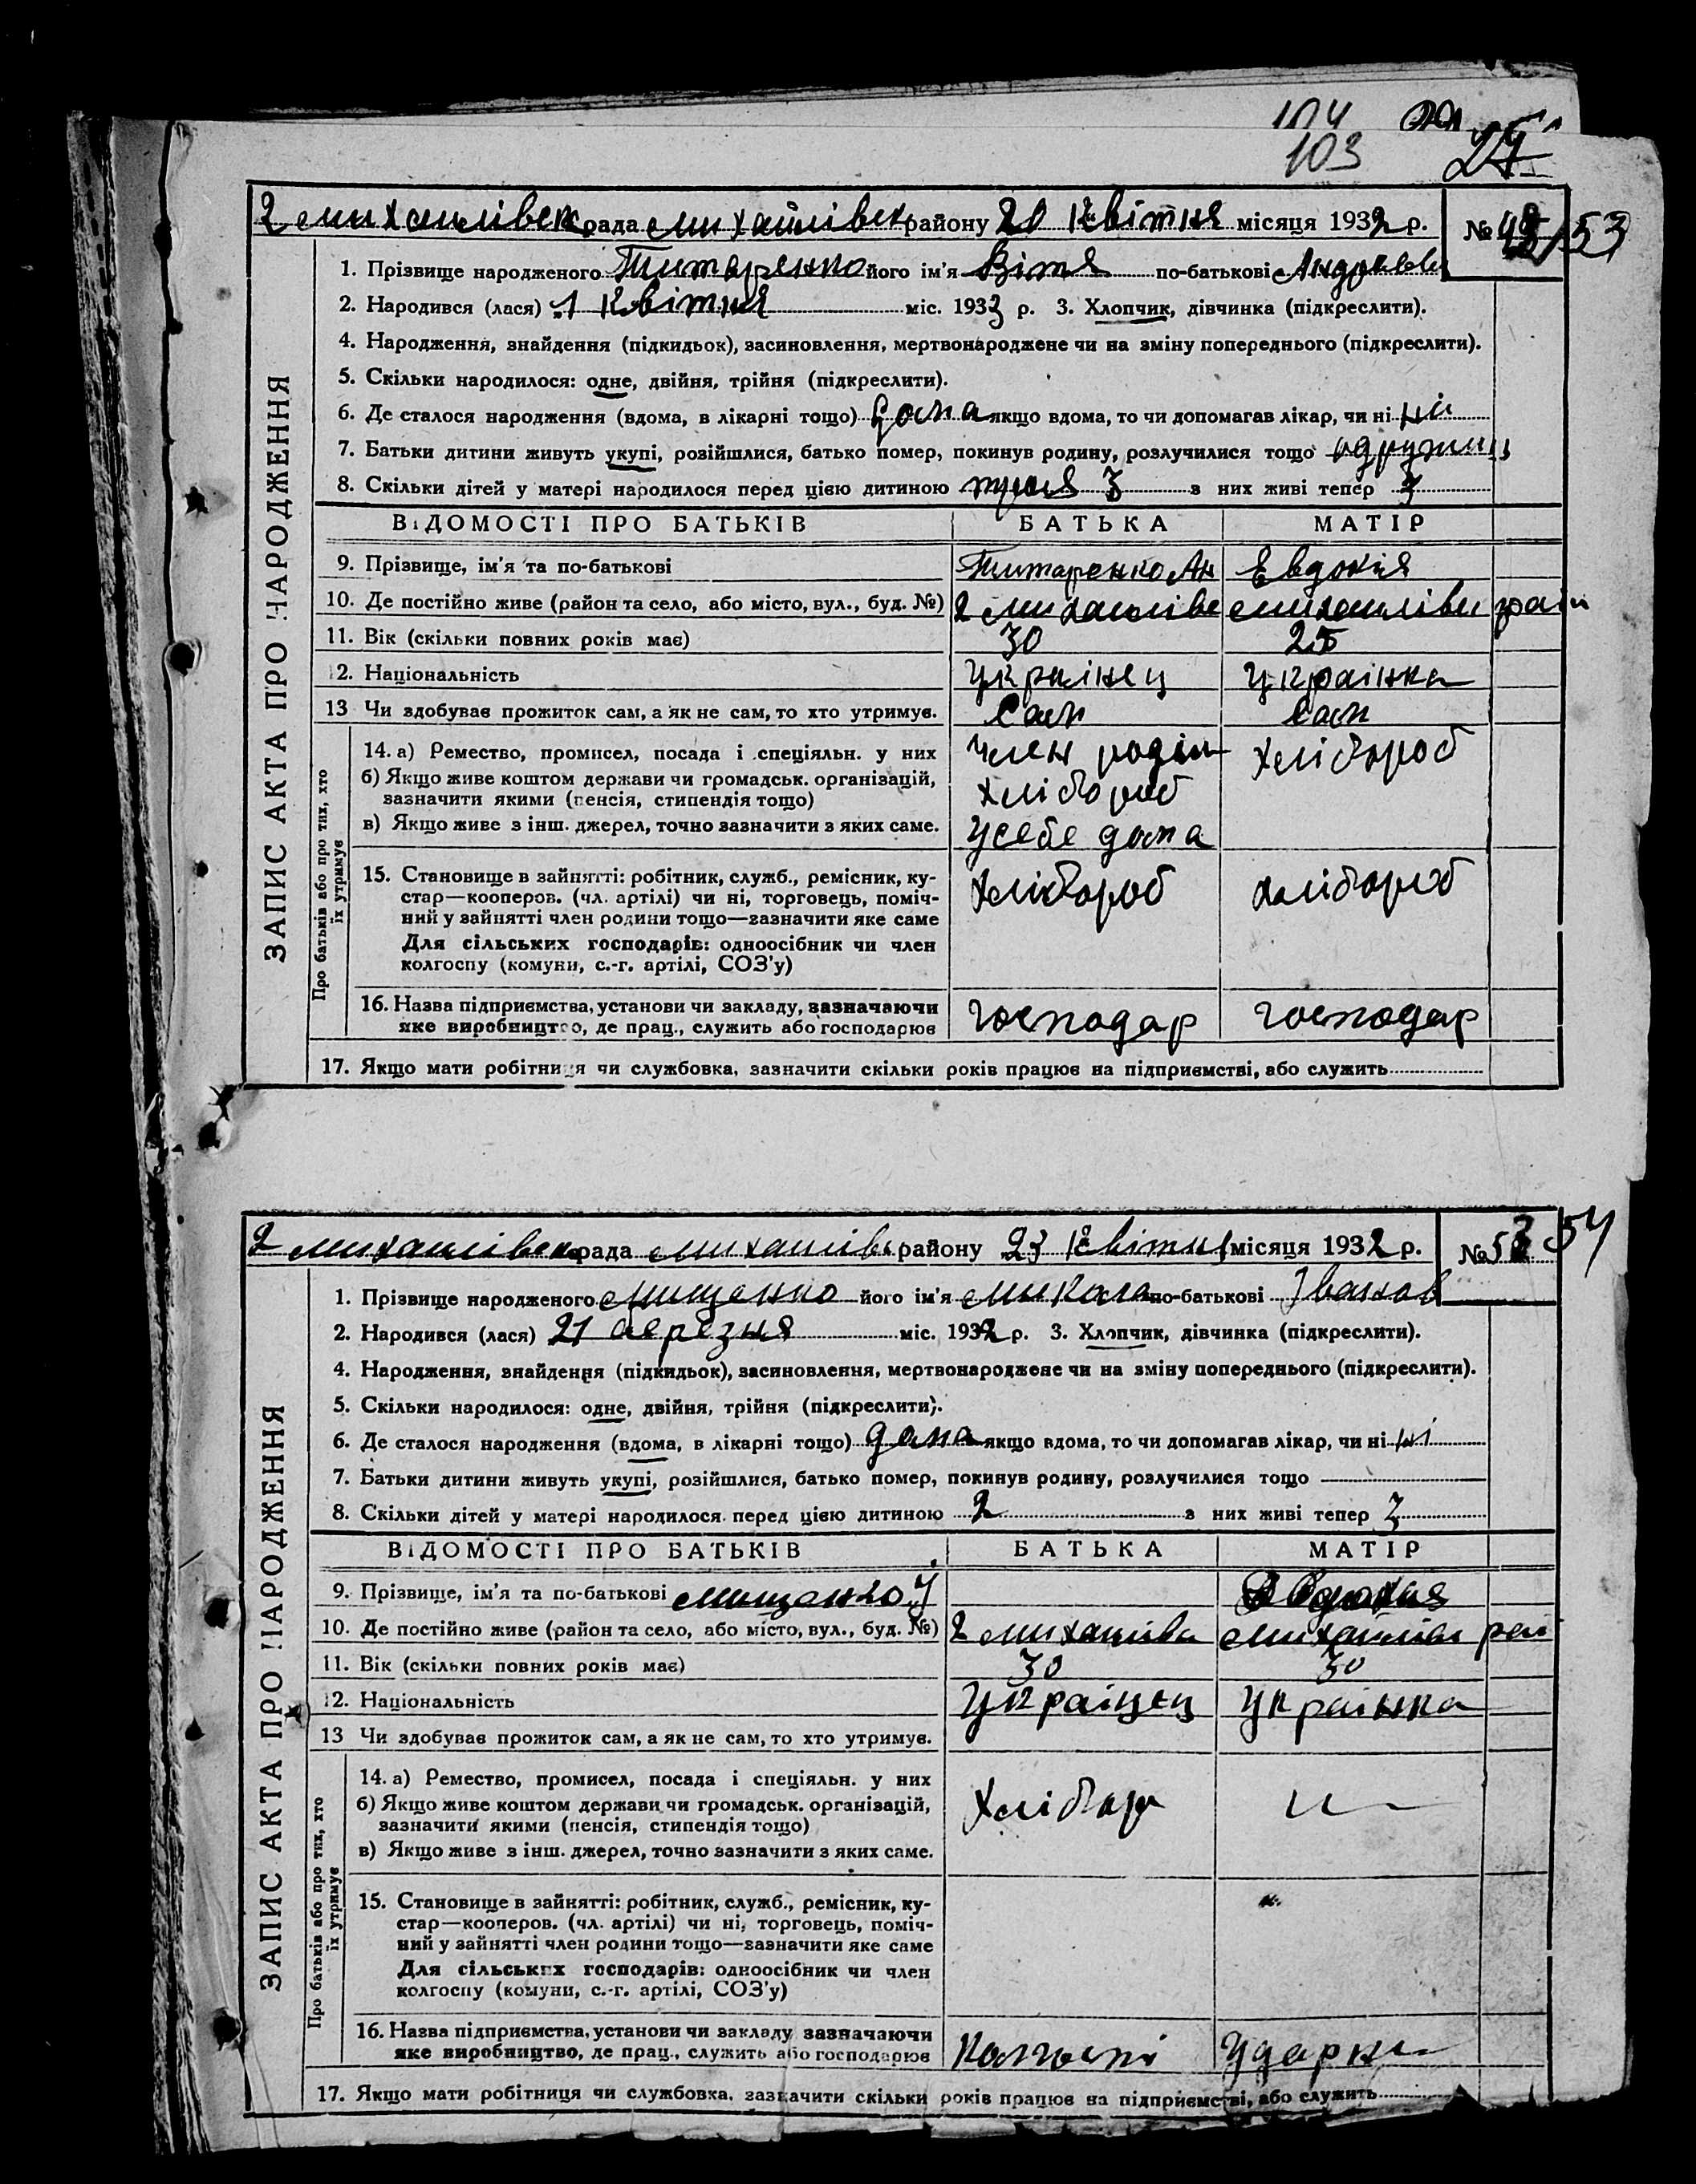 104
103
27
2 михайлівск рада михайлівск району 20 квітня місяця 1932 р. № 53
ЗАПИС АКТА ПРО НАРОДЖЕННЯ
1. Прізвище народженого Титаренко його ім'я Вітя по-батькові Андреев
2. Народився (лася) 1 квітня міс. 1932 р. 3. Хлопчик, дівчинка (підкреслити).
4. Народження, знайдення (підкидьок), засиновлення, мертвонароджене чи на зміну попереднього (підкреслити).
5. Скільки народилося: одне, двійня, трійня (підкреслити).
6. Де сталося народження (вдома, в лікарні тощо) дома якщо вдома, то чи допомагав лікар, чи ні ні
7. Батьки дитини живуть укупі, розійшлися, батько помер, покинув родину, розлучилися тощо
8. Скільки дітей у матері народилося перед цією дитиною 3 з них живі тепер 3
ВІДОМОСТІ ПРО БАТЬКІВ БАТЬКА МАТІР
9. Прізвище, ім'я та по-батькові Титаренко Ан Евдокія
10. Де постійно живе (район та село, або місто, вул., буд. №) 2 михайлівк михайлівк район
11. Вік (скільки повних років має) 30 25
12. Національність Українец Українка
13 Чи здобував прожиток сам, а як не сам, то хто утримує. Сам сам
Про батьків або про тих, хто
їх утримує
14. а) Ремество, промисел, посада і спеціяльн. у них член родіни хлібороб
б) Якщо живе коштом держави чи громадськ. організацій,
зазначити якими (пенсія, стипендія тощо) хлібороб
в) Якщо живе з інш. джерел, точно зазначити з яких саме. у себе дома
15. Становище в зайнятті: робітник, служб., ремісник, ку-
стар—кооперов. (чл. артілі) чи ні, торговець, поміч- хлібороб хлібороб
ний у зайнятті член родини тощо—зазначити яке саме
Для сільських господарів: одноосібник чи член
колгоспу (комуни, с.-г. артілі, СОЗ'у)
16. Назва підприємства, установи чи закладу, зазначаючи
яке виробництво, де прац., служить або господарює господар господар
17. Якщо мати робітниця чи службовка, зазначити скільки років працює на підприємстві, або служить
2 михайлівск рада михайлівс району 23 квітня місяця 1932 р. № 54
ЗАПИС АКТА ПРО НАРОДЖЕННЯ
1. Прізвище народженого Мищенко його ім'я Микола по-батькові Іванов
2. Народився (лася) 21 березня міс. 1932 р. 3. Хлопчик, дівчинка (підкреслити).
4. Народження, знайдення (підкидьок), засиновлення, мертвонароджене чи на зміну попереднього (підкреслити).
5. Скільки народилося: одне, двійня, трійня (підкреслити).
6. Де сталося народження (вдома, в лікарні тощо) дома якщо вдома, то чи допомагав лікар, чи ні ні
7. Батьки дитини живуть укупі, розійшлися, батько помер, покинув родину, розлучилися тощо
8. Скільки дітей у матері народилося перед цією дитиною 2 з них живі тепер 3
ВІДОМОСТІ ПРО БАТЬКІВ БАТЬКА МАТІР
9. Прізвище, ім'я та по-батькові Мищенко І
10. Де постійно живе (район та село, або місто, вул., буд. №) 2 михайлівк михайлівк рай
11. Вік (скільки повних років має) 30 30
12. Національність Українец Українка
13 Чи здобував прожиток сам, а як не сам, то хто утримує.
Про батьків або про тих, хто
їх утримує
14. а) Ремество, промисел, посада і спеціяльн. у них
б) Якщо живе коштом держави чи громадськ. організацій, хлібор
зазначити якими (пенсія, стипендія тощо)
в) Якщо живе з інш. джерел, точно зазначити з яких саме.
15. Становище в зайнятті: робітник, служб., ремісник, ку-
стар—кооперов. (чл. артілі) чи ні, торговець, поміч-
ний у зайнятті член родини тощо—зазначити яке саме
Для сільських господарів: одноосібник чи член
колгоспу (комуни, с.-г. артілі, СОЗ'у)
16. Назва підприємства, установи чи закладу зазначаючи
яке виробництво, де прац., служить або господарює колгоспі Ударни
17. Якщо мати робітниця чи службовка, зазначити скільки років працює на підприємстві, або служить